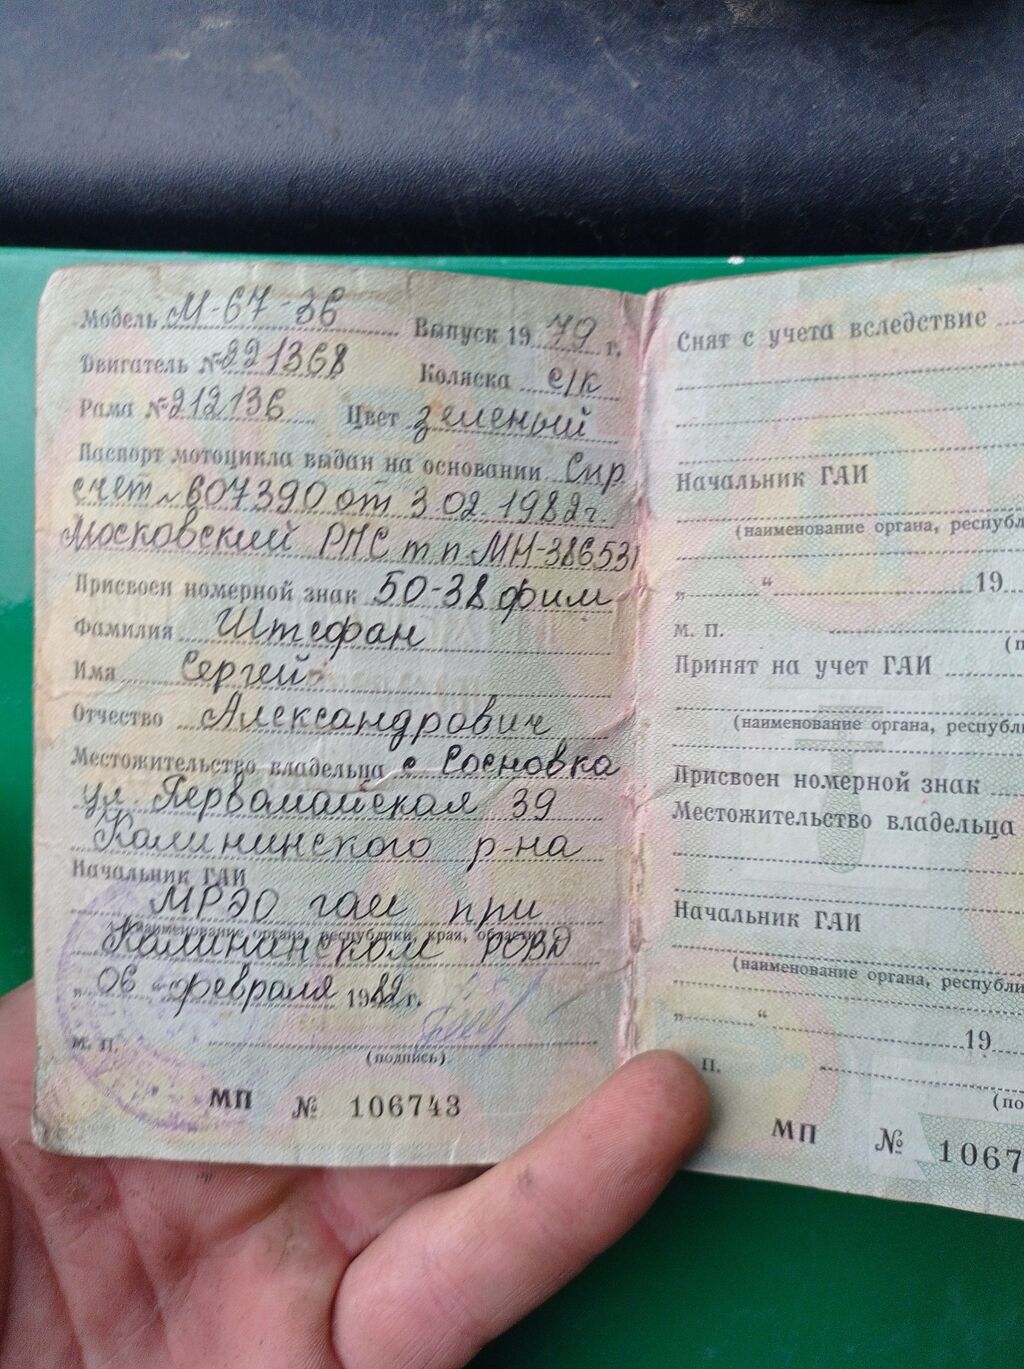 Модель М-67-36 Выпуск 1979 г.
Двигатель № 221368 Коляска с/к
Рама № 212136 Цвет зеленый
Паспорт мотоцикла выдан на основании Спр
счет № 607390 от 3 02 1982г.
Московский РПС т п. МН-386531
Присвоен номерной знак 50-38 фим
Фамилия Штефан
Имя Сергей
Отчество Александрович
Местожительство владельца с Сосновка
ул Первомайская 39
Калининского р-на
Начальник ГАИ
МРЭО гаи при
(наименование органа, республики, края, области)
Калининском РОВД
„06“ февраля 1982 г.
М. П.
(подпись)
МП № 106743
Снят с учета вследствие
Начальник ГАИ
(наименование органа, республ
„ “ 19
М. П.
(п
Принят на учет ГАИ
(наименование органа, республи
Присвоен номерной знак
Местожительство владельца
Начальник ГАИ
(наименование органа, республи
„ “ 19
П.
(по
МП № 1067